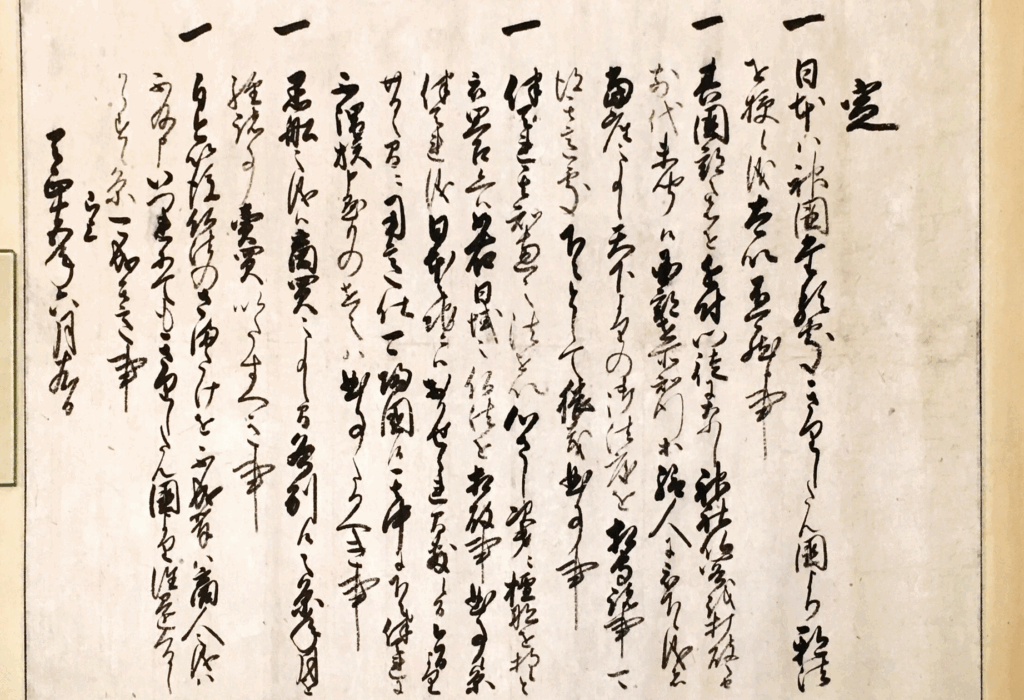 定
一 日本ハ神国たる処きりしたん国より邪法
を授候儀太以不可然候事
一 其国郡之者を近付門徒になし神社仏閣を打破之由
前代未聞候国郡在所知行等給人に被下候儀者
当座之事候天下よりの御法度を相守諸事可
得其意処下々として猥義曲事事
一 伴天連其知恵之法を以心さし次第ニ檀那を持候と
被思召候へハ如右日域之仏法を相破事曲事候条
伴天連儀日本之地ニハおかせられ間敷候間今日より
廿日之間ニ用意仕可帰国候其中に下々伴天連に
不謂族申懸もの在之ハ曲事たるへき事
一 黒船之儀ハ商買之事候間各別に候之条年月を
経諸事売買いたすへき事
一 自今以後仏法のさまたけを不成輩ハ商人之儀ハ
不及申いつれにてもきりしたん国より往還くる
しからす候条可成其意事
已上
天正十五年六月十九日